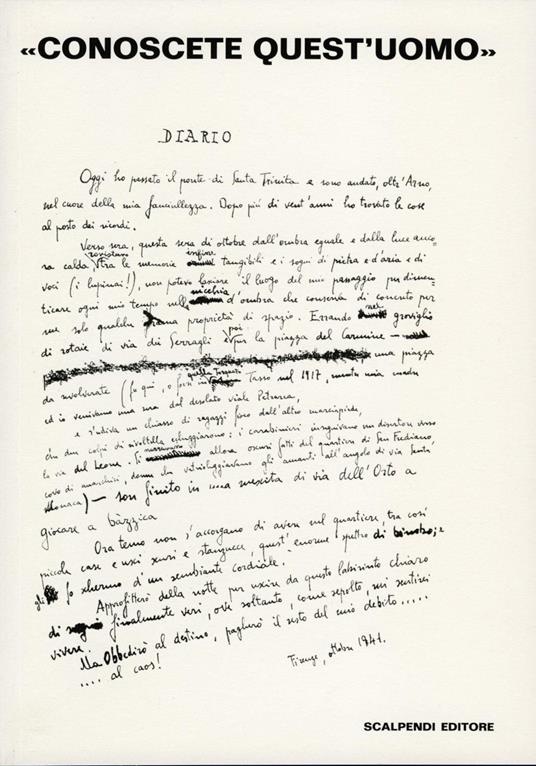 «CONOSCETE QUEST'UOMO»
DIARIO
Oggi ho passato il ponte di Santa Trinita e sono andato, oltr'Arno,
nel cuore della mia fanciullezza. Dopo più di vent'anni ho trovato le cose
al posto dei ricordi.
Verso sera, questa sera di ottobre dall'ombra eguale e dalla luce anco-
rovistare infine
ra calda, tra le memorie tangibili e i sogni di pietra e d'aria e di
voci (i lupinai!), non potevo lasciare il luogo del mio passaggio per dimen-
nicchia
ticare ogni mio tempo nella d'ombra che conserva di concreto per
me solo qualche proprietà di spazio. Errando nel groviglio
poi
di rotaie di via dei Serragli e per la piazza del Carmine –
una piazza
quella Torquato
da revolverate (fu qui, o forse in Tasso nel 1917, mentre mia madre
ed io venivamo una sera dal desolato viale Petrarca,
e s'udiva un chiasso di ragazzi fioco dall'altro marciapiede,
che due colpi di rivoltella echeggiarono: i carabinieri inseguivano un disertore verso
la via del Leone. Si allora oscuri fatti del quartiere di San Frediano,
covo di anarchici, donne che vetrioleggiavano gli amanti all'angolo di via Santa
Monaca) – son finito in una mescita di via dell'Orto a
giocare a bàzzica
Ora temo non s'accorgano di avere nel quartiere, tra così
piccole case e usci scuri e stanguece, quest'enorme spettro di bimbo; e
gli fo schermo d'un sembiante cordiale.
Approfitterò della notte per uscire da questo labirinto chiaro
di finalmente veri, ove soltanto, come sepolto, mi sentirei
vivere.
Ma Obbedirò al destino, pagherò il resto del mio debito.....
.... al caos!
Firenze, ottobre 1941.
SCALPENDI EDITORE